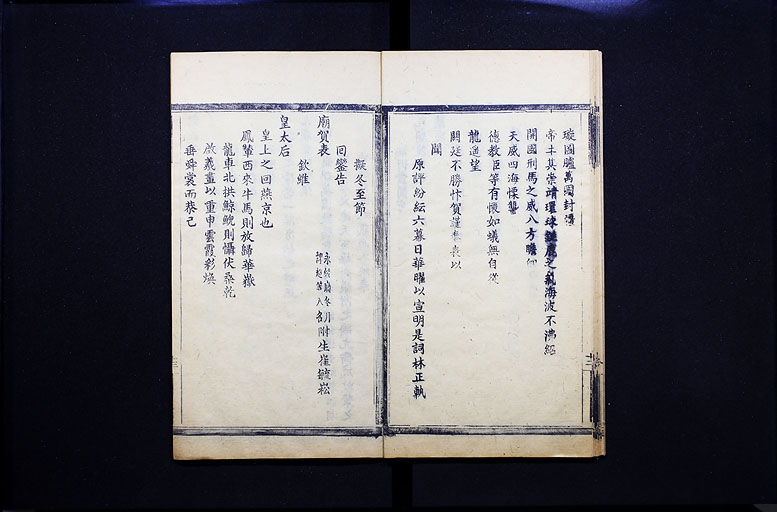 璇圖臚萬國封
帝土其崇靖環球之氣海波不沸
開國刑馬之威八方瞻
天威四海懷
德教臣等有懷如蟻無自從
龍遙望
闕廷不勝忭賀謹奉表以
聞
原評紛紜六幕日華曜以宣明是詞林正軌
擬冬至節
回鑾告
廟賀表
永 冬月附生崔 崧
譚 等八名附
欽維
皇太后
皇上之回燕京也
鳳輦西來牛馬則放歸華嶽
龍車北拱鯨鯢則懾伏桑乾
啟羲畫以重申雲霞彩煥
垂舜裳而恭己